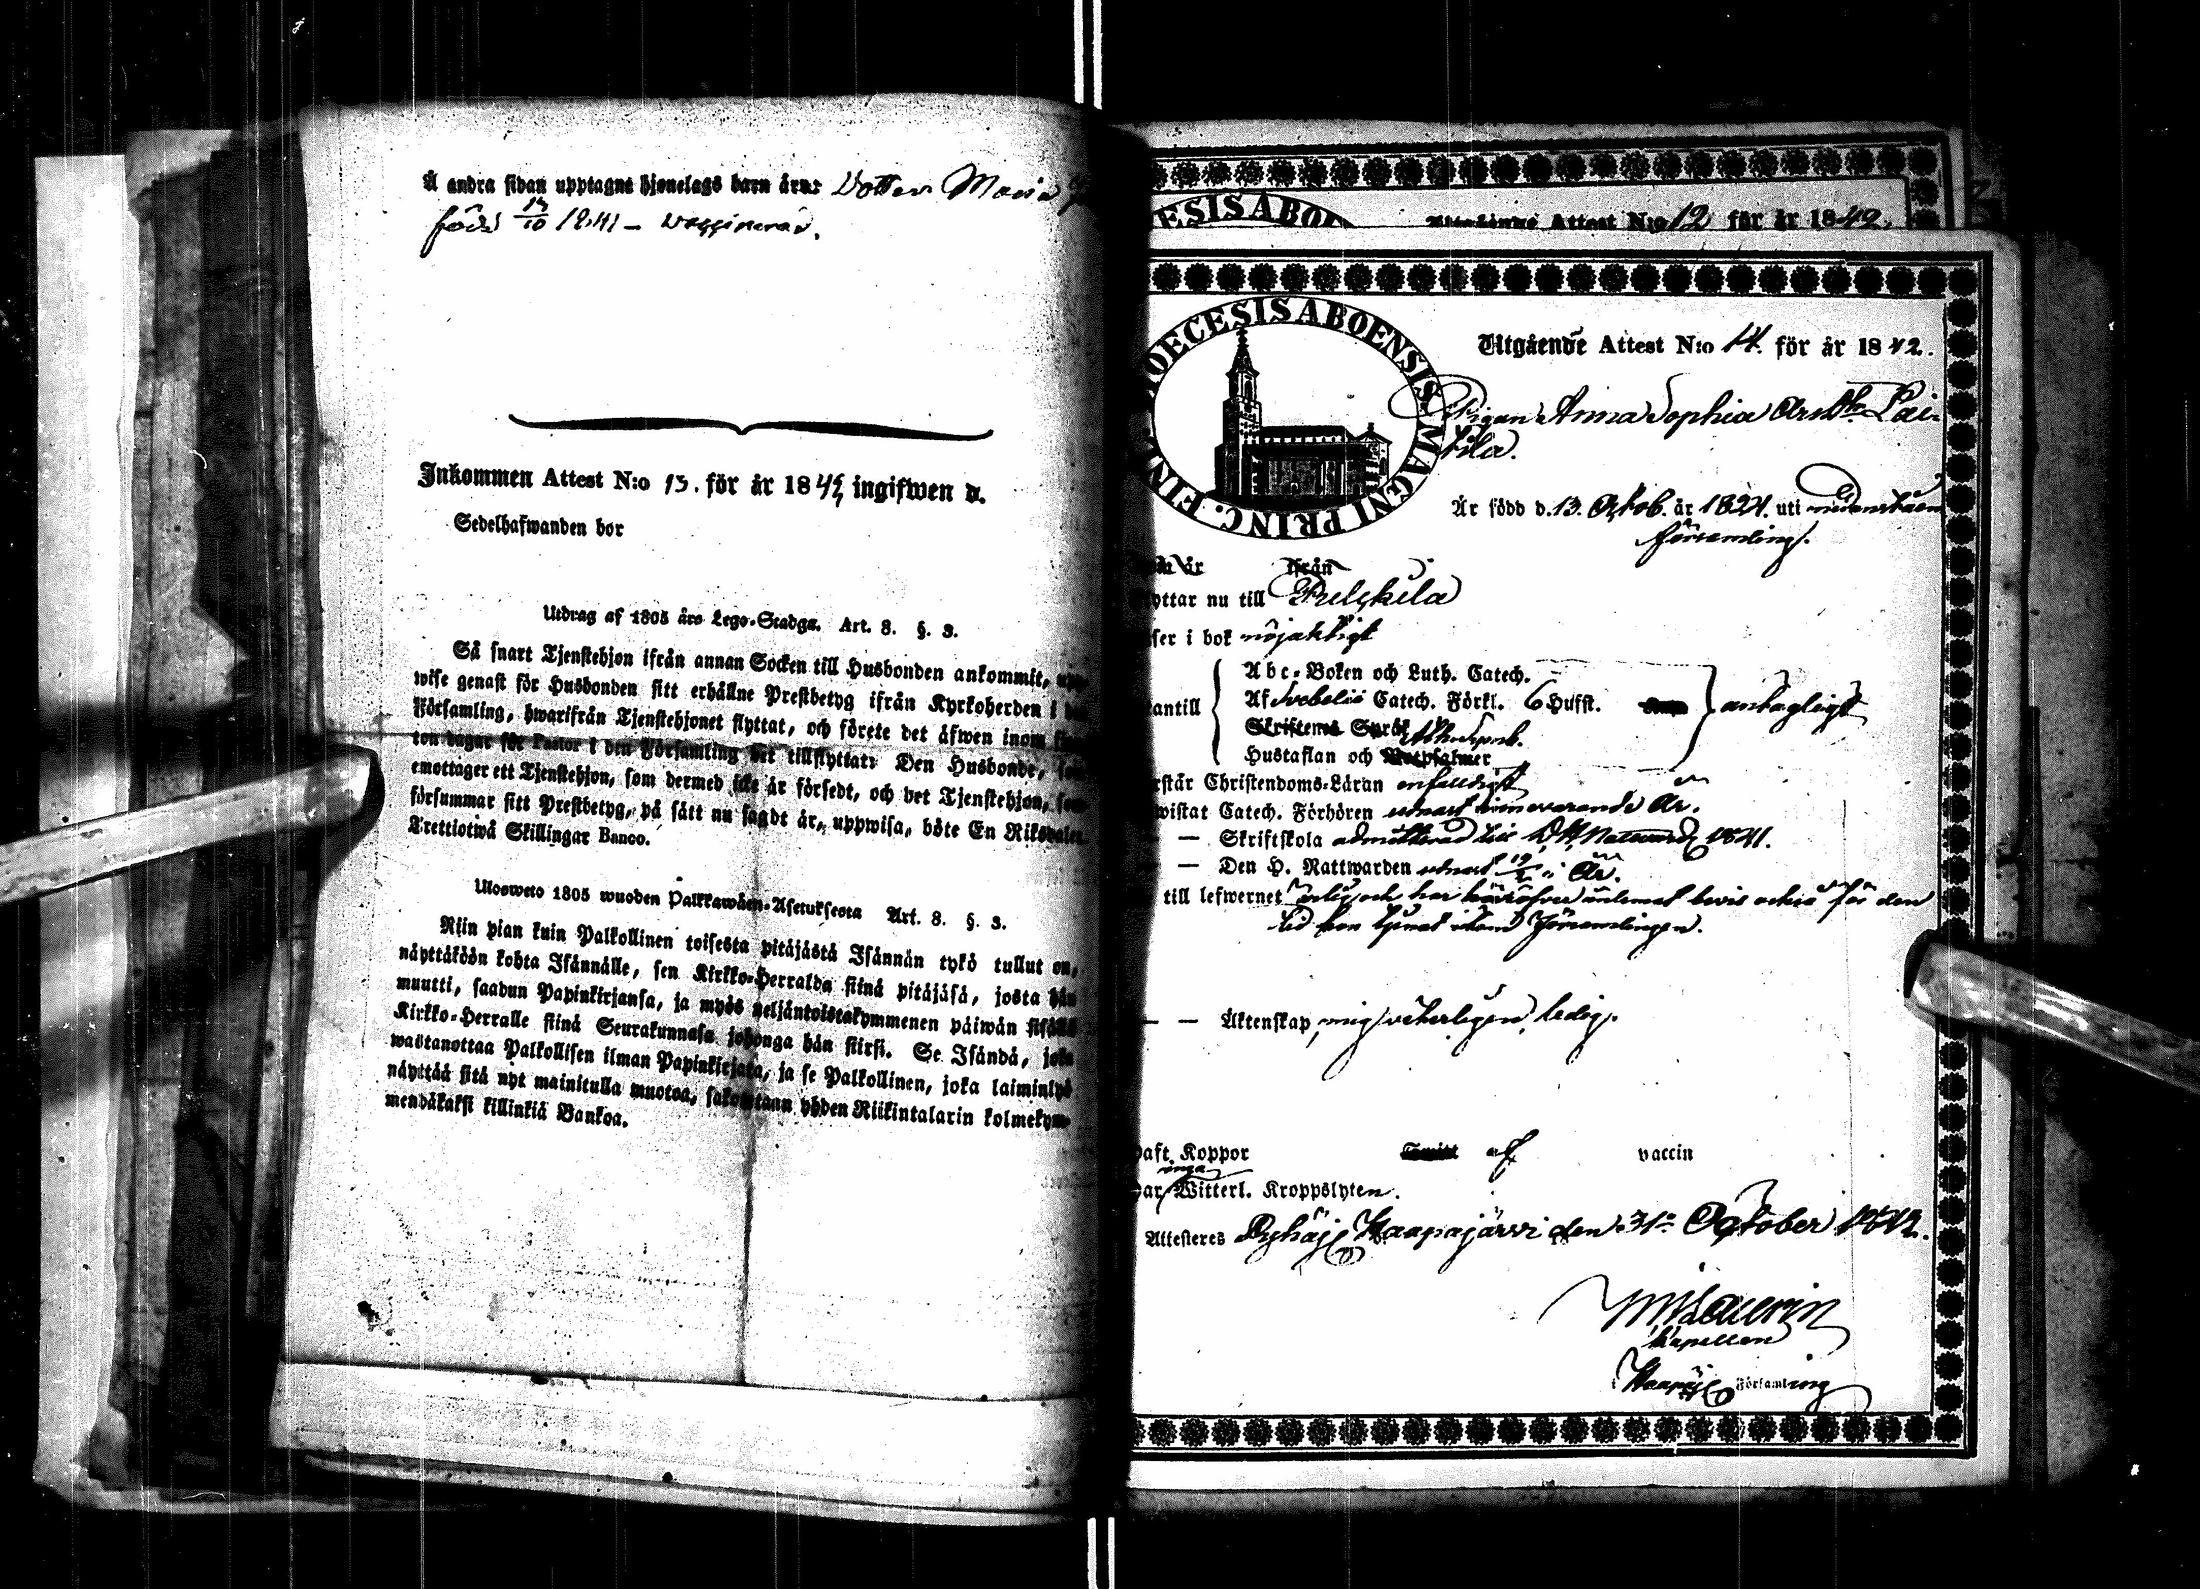 Å andra sidan upptagne hjonelags barn äro: Dotter Maria
född 14/10 1841 – vaccinerad.
Inkommen Attest N:o 13. för år 1842 ingifwen d.
Sedelhafwanden bor
Utdrag af 1805 års Lego-Stadga. Art. 8. §. 3.
Så snart Tjenstehjon ifrån annan Socken till Husbonden ankommit,
wise genast för Husbonden sitt erhållne Prestbetyg ifrån Kyrkoherden i
Församling, hwarifrån Tjenstehjonet flyttat, och förete det äfwen inom
ton dagar för Pastor i den Församling det tillflyttat: Den Husbonde,
emottager ett Tjenstehjon, som dermed icke är försedt, och det Tjenstehjon,
försummar sitt Prestbetyg, på sätt nu sagdt är, uppwisa, böte En Riksdaler
Trettiotwå Skillingar Banco.
Ulosweto 1805 wuoden Palkkawäen-Asetuksesta Art. 8. §. 3.
Niin pian kuin Palkollinen toisesta pitäjästä Isännän tykö tullut on,
näyttäköön kohta Isännälle, sen Kirkko-Herralda siinä pitäjäsä, josta hän
muutti, saadun Papinkirjansa, ja myös neljäntoistakymmenen päiwän sisällä
Kirkko-Herralle siinä Seurakunnasa johonga hän siirsi. Se Isändä, joka
wastanottaa Palkollisen ilman Papinkirjata, ja se Palkollinen, joka laiminlyö
näyttää sitä nyt mainitulla muotoa, sakoitetaan yhden Riikintalarin kolmekym-
mendäkaksi killinkiä Bankoa.
ESIS ABOE
Attest N:o 12 för år 1842.
DIOECESIS ABOENSIS MAGNI PRINC. FINL.
Utgående Attest N:o 14. för år 1842.
Pigan Anna Sophia Arsdtr Lai-
tila.
Är född d. 13. Octob. år 1824. uti
församling.
år ifrån
flyttar nu till Pulckila
läser i bok nöjaktigt
utantill Abc-Boken och Luth. Catech.
Af Svebelii Catech. Förkl. 6 Hufst. antagligt
Skriftenes Språk
Hustaflan och Botpsalmer
Förstår Christendoms-Läran enfaldigt
bewistat Catech. Förhören innevarande År.
— Skriftskola admitterad till D. H. Nattward 1841.
— Den H. Nattwarden i År.
till lefwernet ärlig och har härstädes för den
tid hon tjenat inom Församlingen.
— — Äktenskap, mig veterligen, ledig.
haft Koppor af vaccin
har inga Witterl. Kroppslyten.
Attesteres Pyhäj. Haapajärvi den 31 October 1842.
Kapellan
i Haapaj. Församling